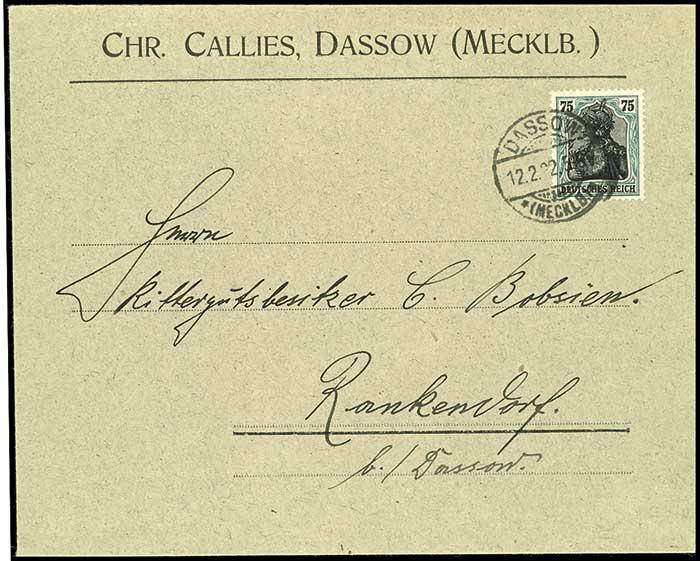 CHR. CALLIES, DASSOW (MECKLB.)
75 75
DEUTSCHES REICH
DASSOW
12.2.22
*(MECKLB.)
Herrn
Rittergutsbesitzer C. Bobsien.
Rankendorf.
b./Dassow.